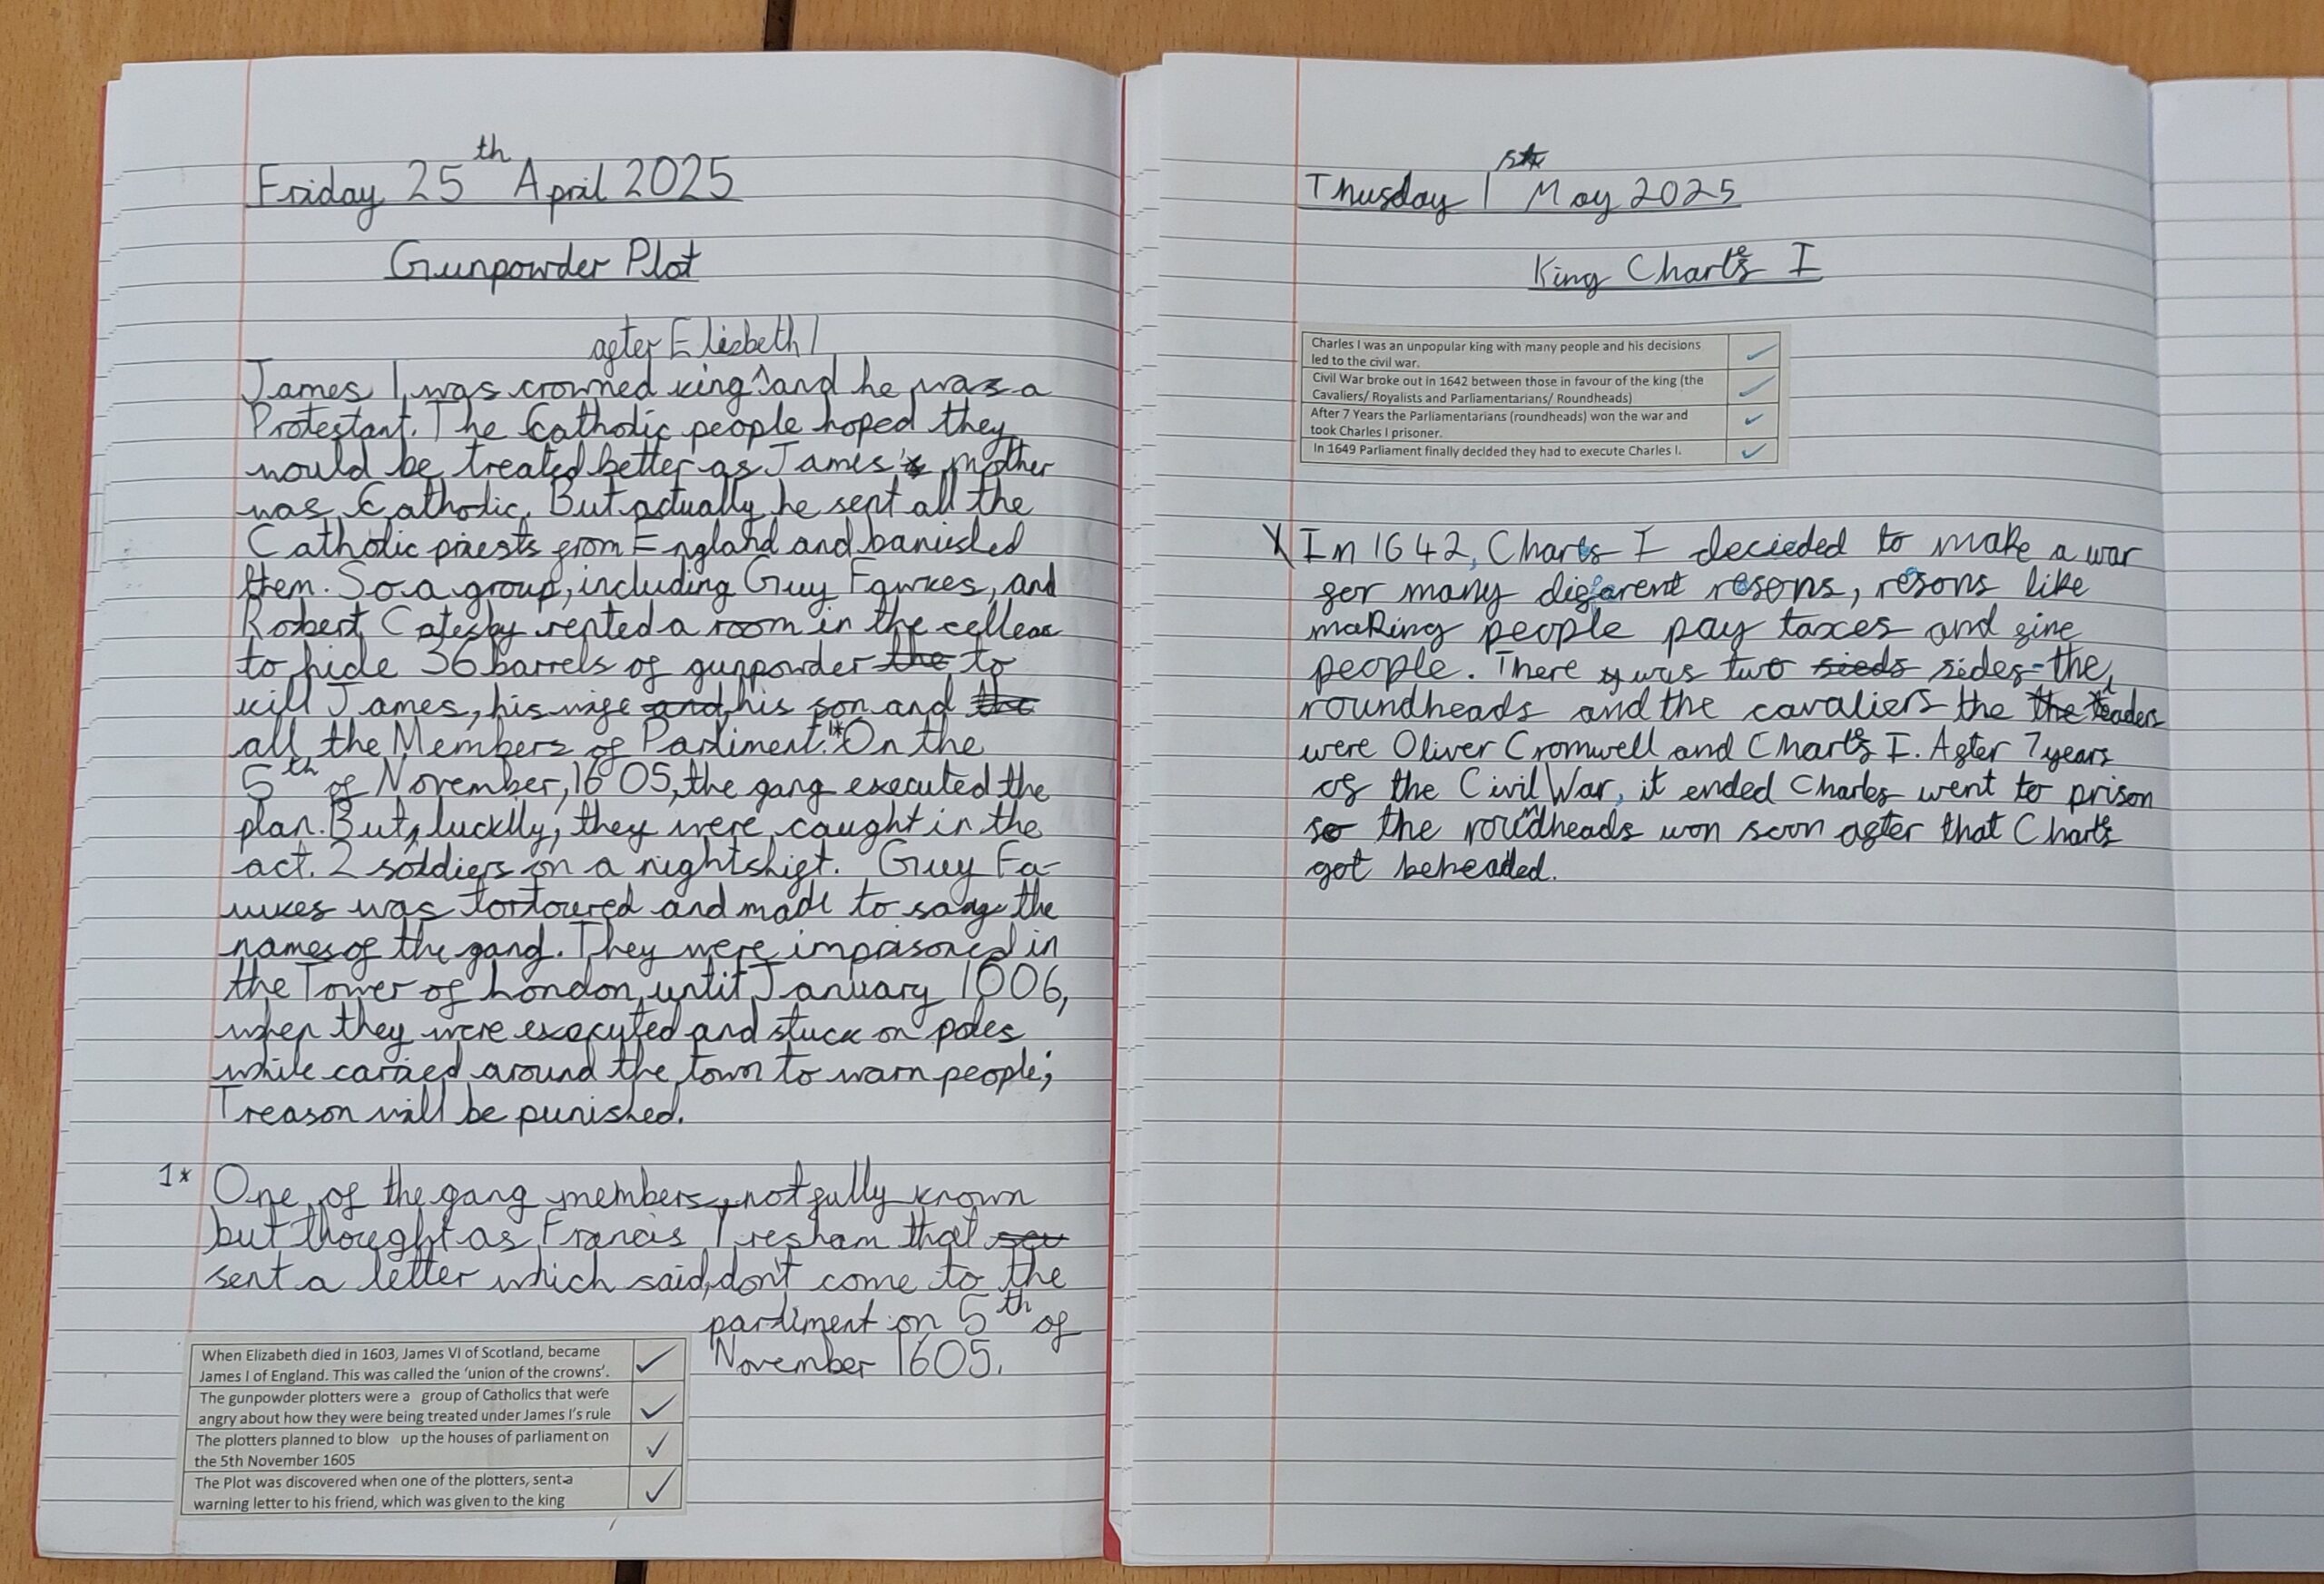 Friday 25th April 2025
Gunpowder Plot
after Elizbeth I
James I was crowned king^and he was a
Protestant. The Catholic people hoped they
would be treated better as James' mother
was Catholic. But actually he sent all the
Catholic priests from England and banished
them. So a group, including Guy Fawkes, and
Robert Catesby rented a room in the cellear
to hide 36 barrels of gunpowder the to
kill James, his wife and, his son and the
all the Members of Parliment.1* On the
5th of November, 1605, the gang executed the
plan. But, luckily, they were caught in the
act. 2 soldiers on a nightshift. Guy Fa-
wkes was tortoured and made to say the
names of the gang. They were imprisoned in
the Tower of London until January 1606,
when they were executed and stuck on poles
while carried around the town to warn people;
Treason will be punished.
1* One of the gang members, not fully known
but thought as Francis Tresham that seu
sent a letter which said, don't come to the
parliment on 5th of
November 1605.
When Elizabeth died in 1603, James VI of Scotland, became
James I of England. This was called the 'union of the crowns'.
The gunpowder plotters were a group of Catholics that were
angry about how they were being treated under James I's rule
The plotters planned to blow up the houses of parliament on
the 5th November 1605
The Plot was discovered when one of the plotters, sent a
warning letter to his friend, which was given to the king
Thusday 1st May 2025
King Charles I
Charles I was an unpopular king with many people and his decisions
led to the civil war.
Civil War broke out in 1642 between those in favour of the king (the
Cavaliers/ Royalists and Parliamentarians/ Roundheads)
After 7 Years the Parliamentarians (roundheads) won the war and
took Charles I prisoner.
In 1649 Parliament finally decided they had to execute Charles I.
In 1642, Charles I decieded to make a war
for many difarent resons, resons like
making people pay taxes and fine
people. There was two sieds sides-the
roundheads and the cavaliers the the leaders
were Oliver Cromwell and Charles I. After 7 years
of the Civil War, it ended Charles went to prison
so the roundheads won soon after that Charles
got beheaded.